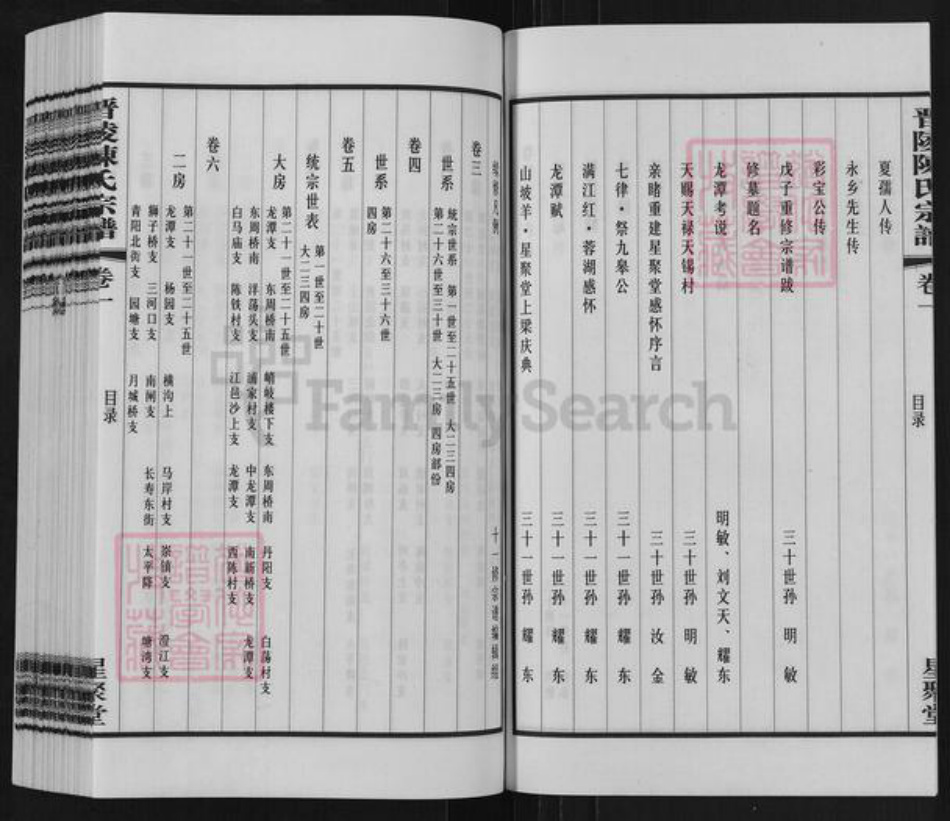 晋陵陈氏宗谱 卷一 目录 星聚堂
夏孺人传
永乡先生传
彩宝公传
戊子重修宗谱跋 三十世孙 明敏
修墓题名
龙潭考说 明敏、刘文天、耀东
天赐天禄天锡村 三十世孙 明敏
亲睹重建星聚堂感怀序言 三十世孙 汝金
七律·祭九皋公 三十一世孙 耀东
满江红·蓉湖感怀 三十一世孙 耀东
龙潭赋 三十一世孙 耀东
山坡羊·星聚堂上梁庆典 三十一世孙 耀东
卷三
世系 统宗世系 第一世至二十五世 大二三四房
第二十六世至三十世 大二三房 四房部份
卷四
世系 第二十六至三十六世
四房
卷五
统宗世表 第一世至二十世
大二三四房
大房 第二十一世至二十五世
龙潭支 东周桥南 峭岐楼下支 东周桥南 丹阳支 白荡村支
东周桥南 洋荡头支 浦家村支 中龙潭支 南新桥支 龙潭支
白马庙支 陈铁村支 江邑沙上支 龙潭支 西陈村支
卷六
二房 第二十一世至二十五世
龙潭支 杨园支 横沟上 马岸村支 崇镇支 澄江支
狮子桥支 三河口支 南闸支 长寿东街 太平降 塘湾支
青阳北街支 园塘支 月城桥支
晋陵陈氏宗谱 卷一 目录 星聚堂
FamilySearch